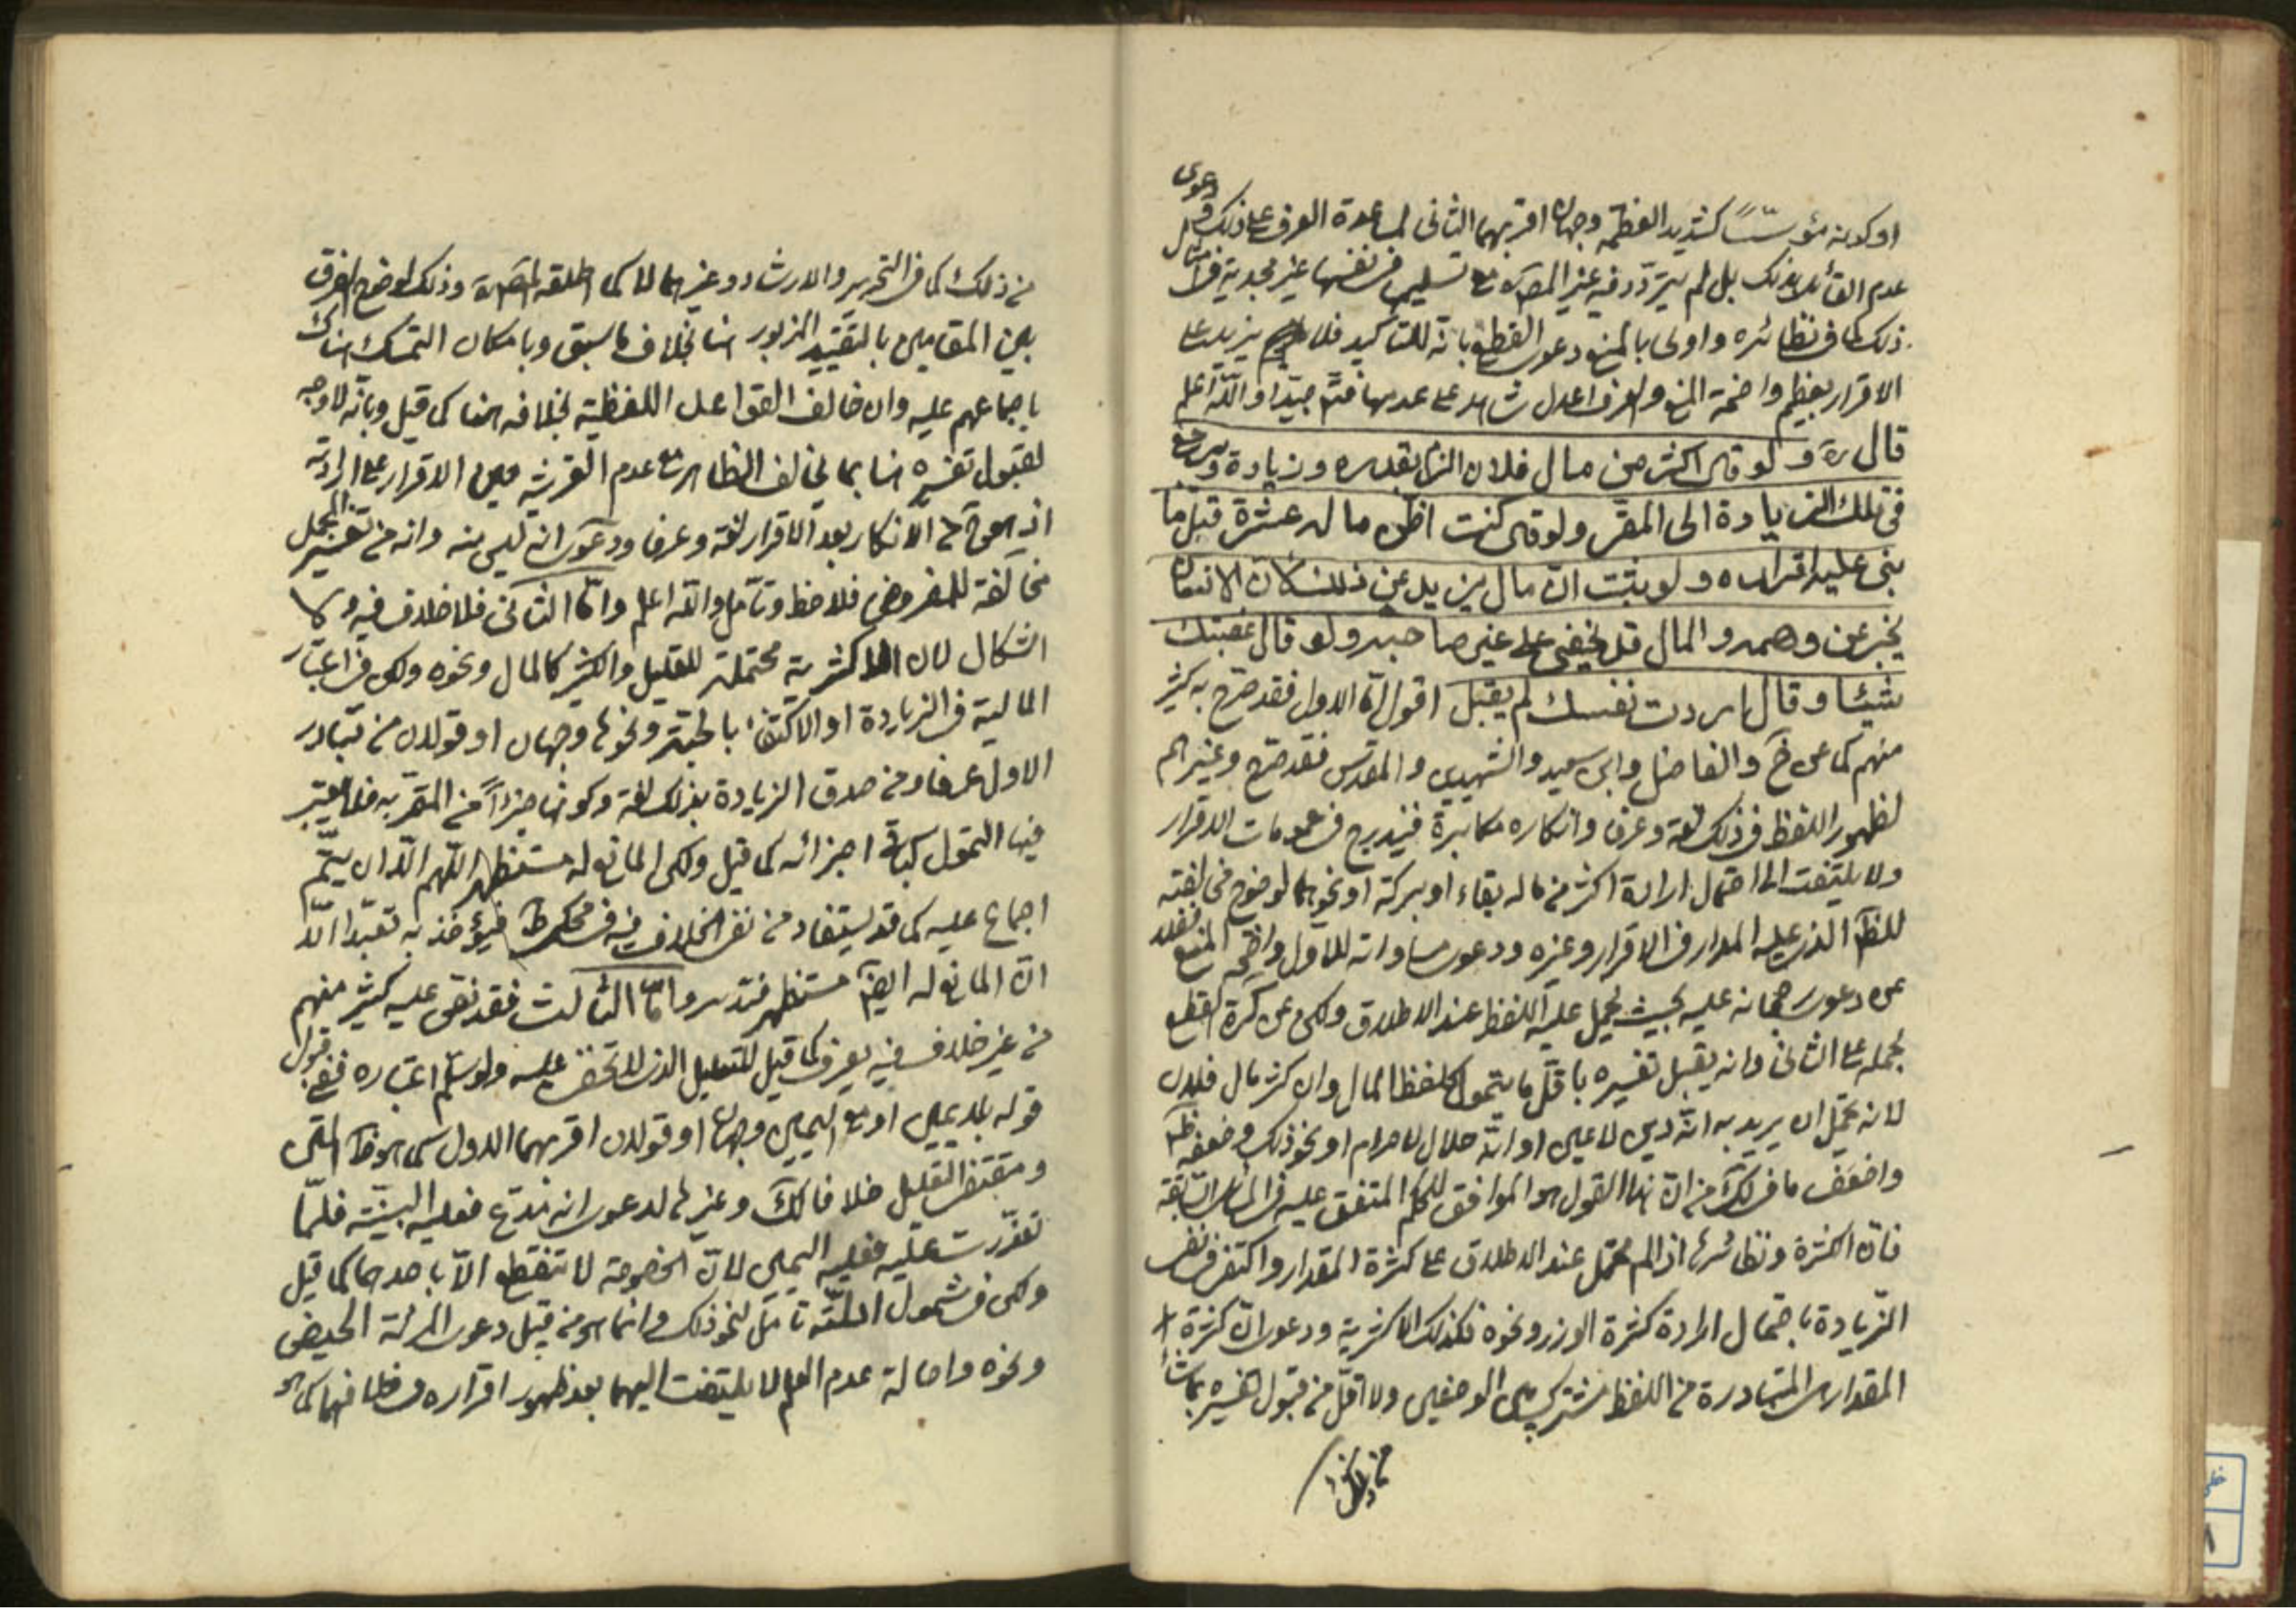 دعوى
او كونه مؤسسًا كشديد العظمة وجهان اقربهما الثانى لمساعدة العرف على ذلك و
عدم القائل بذلك بل لم يتردد فيه غير المص مع تسليم فى نفسها غير مجدية فى
ذلك كما فى نظائره واولى بالمنع دعوى القطع بانه للتاكيد فلا يزيد على
الاقرار بعظيم واضحة المنع والعرف اعدل شاهد على عدمها فتم جيدا والله اعلم
قال ره ولو قال اكثر من مال فلان الزم بقدره وزيادة ويرجع
فى تلك الزيادة الى المقر ولو قال كنت اظن ماله عشرة قبل ما
بنى عليه اقراره ولو ثبت ان مال يزيد عن ذلك لان الانسان
يخبر عن وهمه والمال قد يخفى على غير صاحبه ولو قال غصبتك
شيئا وقال اردت نفسك لم يقبل اقول اما الاول فقد صرح به كثير
منهم كما عن خ والفاضل وابن سعيد والشهيدين والمقدس فقد صرح وغيرهم
لظهور اللفظ فى ذلك لغة وعرفا وانكاره مكابرة فيندرج فى عمومات الاقرار
ولا يلتفت الى احتمال ارادة اكثر من ماله بقاء او بركة او نحوهما لوضوح مخالفته
للظ الذى عليه المدار فى الاقرار وغيره ودعوى مساواته للاول واضحة المنع فضلا
عن دعوى رجحانه عليه بحيث يحمل عليه اللفظ عند الاطلاق ولكن عن كرة القطع
بحمله على الثانى وانه يقبل تفسيره باقل ما يتمول كلفظ المال وان كثر مال فلان
لانه يحتمل ان يريد به انه دين لا عين او انه حلال لا حرام او نحو ذلك وضعفه ظ
واضعف ما فى لك من ان هذا القول هو الموافق للحكم المتفق عليه فى المسائل السابقة
فان الكثرة ونظائرها اذا لم تحمل عند الاطلاق على كثرة المقدار واكتفى فى نفى
الزيادة باحتمال ارادة كثرة الوزر ونحوه فكذلك الاكثرية ودعوى ان كثرة
المقدار المتبادرة من اللفظ مشترك بين الوصفين ولا اقل من قبول تفسيره بما شاء
من ذلك
من ذلك كما فى التحرير والارشاد وغيرهما لا كما اطلقه المص وذلك لوضوح الفرق
بين المقامين بالتقييد المزبور هنا بخلاف ما سبق وبامكان التمسك هناك
باجماعهم عليه وان خالف القواعد اللفظية بخلافه هنا كما قيل وبانه لا وجه
لقبول تفسيره هنا بما يخالف الظاهر مع عدم القرينة حين الاقرار على ارادته
اذ هو ح كالانكار بعد الاقرار لغة وعرفا ودعوى انه ليس منه وانه من تفسير المجمل
مخالفة للمفروض فلاحظ وتامل والله اعلم واما الثانى فلا خلاف فيه ولا
اشكال لان الاكثرية محتملة للقليل والكثير كالمال ونحوه ولكن فى اعتبار
المالية فى الزيادة او الاكتفاء بالحبة ونحوها وجهان او قولان من تبادر
الاول عرفا ومن صدق الزيادة بذلك لغة وكونها جزءا من المقر به فلا يعتبر
فيها التمول كباقى اجزائه كما قيل ولكن المانع له مستظهر اللهم الا ان يتم
اجماع عليه كما قد يستفاد من نفى الخلاف فيه فى محكى ط فيؤخذ به تعبدا الا
ان المانع له ايضا مستظهر فتدبر واما الثالث فقد نص عليه كثير منهم
من غير خلاف فيه يعرف كما قيل للتعليل الذى لا تخفى عليه ولو سلم اعتباره ففى قبول
قوله بلا يمين او مع اليمين وجهان او قولان اقربهما الاول كما هو ظ المتن
ومقتضى التعليل خلافا لك وغيرها لدعوى انه مدع فعليه البينة فلما
تعذرت عليه فعليه اليمين لان الخصومة لا تنقطع الا باحدهما كما قيل
ولكن فى شمول ادلته تامل لنحو ذلك وانما هو من قبيل دعوى المرأة الحيض
ونحوه واصالة عدم العلم لا يلتفت اليهما بعد ظهور اقراره فى خلافهما كما هو